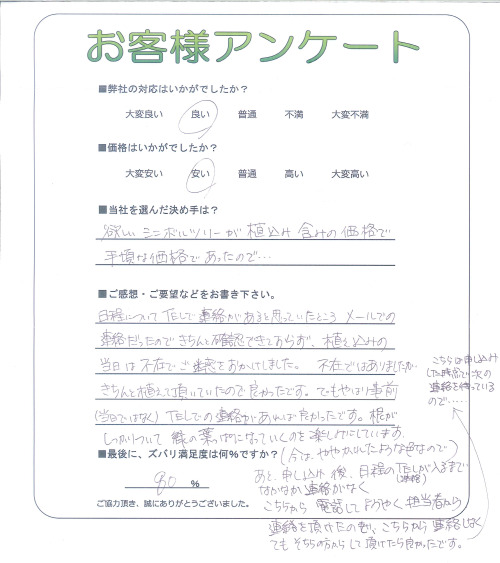 お客様アンケート
■弊社の対応はいかがでしたか？
大変良い 良い 普通 不満 大変不満
■価格はいかがでしたか？
大変安い 安い 普通 高い 大変高い
■当社を選んだ決め手は？
欲しいシンボルツリーが植込み含みの価格で
手頃な価格であったので…
■ご感想・ご要望などをお書き下さい。
日程についてTELで連絡があると思っていたところメールでの
連絡だったのできちんと確認できておらず、植え込みの
当日は不在でご迷惑をおかけしました。不在ではありましたが
きちんと植えて頂いていたので良かったです。でもやはり事前
(当日ではなく)TELでの連絡があれば良かったです。根が
しっかりついて緑の葉っぱになっていくのを楽しみにしています。
(今は、ややかれたような色なので)
こちらは申し込み
した時点で次の
連絡を待っている
ので….
■最後に、ズバリ満足度は何%ですか？
80 %
ご協力頂き、誠にありがとうございました。
あと、申し込み後、日程のTELが入るまで
(連絡)
なかなか連絡がなく
こちらから電話してようやく担当者から
連絡を頂けたのも、こちらから連絡しなく
てもそちらの方からして頂けたら良かったです。